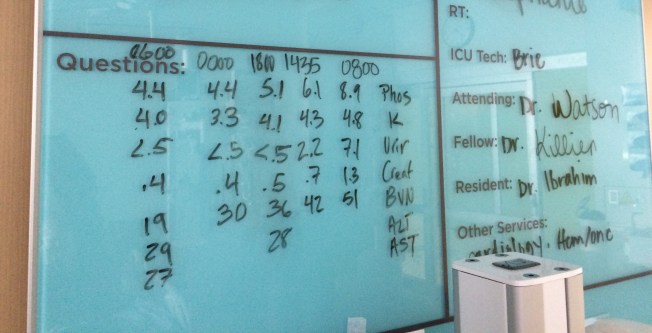 0600
Questions: 0000 1800 1435 0800
4.4 4.4 5.1 6.1 8.9 Phos
4.0 3.3 4.1 4.3 4.8 K
<.5 <.5 <.5 2.2 7.1 Uric
.4 .4 .5 .7 1.3 Creat
19 30 36 42 51 BUN
29 28 ALT
27 AST
RT:
ICU Tech: Brie
Attending: Dr. Watson
Fellow: Dr. Killien
Resident: Dr. Ibrahim
Other Services:
cardiology, Hem/onc